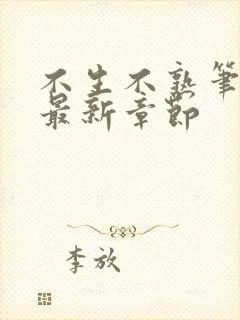 不生不熟筆
最新章節
李放